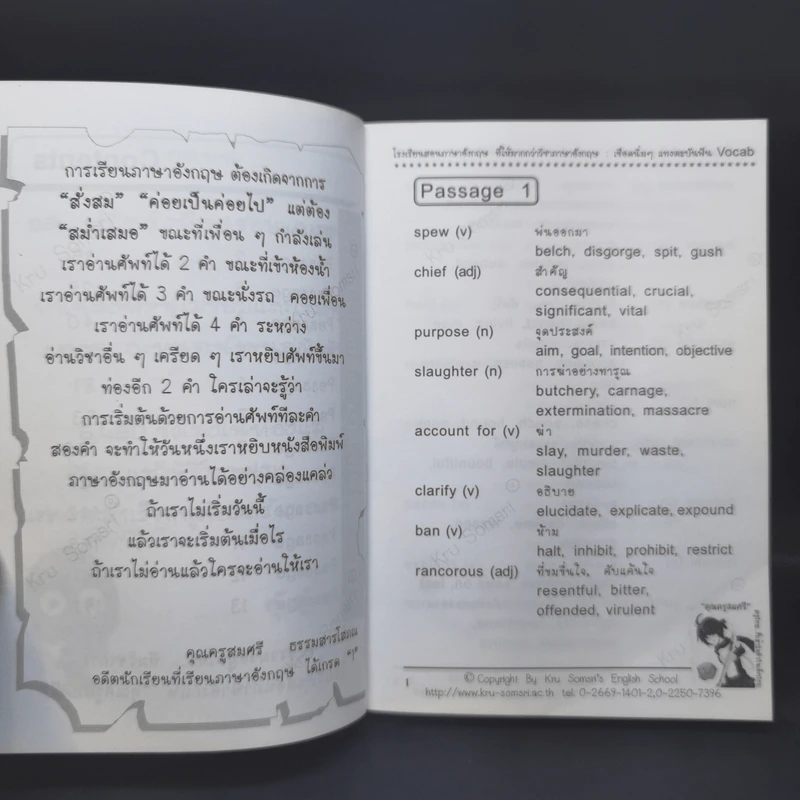 การเรียนภาษาอังกฤษ ต้องเกิดจากการ
“สั่งสม” “ค่อยเป็นค่อยไป” แต่ต้อง
“สม่ำเสมอ” ขณะที่เพื่อน ๆ กำลังเล่น
เราอ่านศัพท์ได้ 2 คำ ขณะที่เข้าห้องน้ำ
เราอ่านศัพท์ได้ 3 คำ ขณะนั่งรถ คอยเพื่อน
เราอ่านศัพท์ได้ 4 คำ ระหว่าง
อ่านวิชาอื่น ๆ เครียด ๆ เราหยิบศัพท์ขึ้นมา
ท่องอีก 2 คำ ใครเล่าจะรู้ว่า
การเริ่มต้นด้วยการอ่านศัพท์ทีละคำ
สองคำ จะทำให้วันหนึ่งเราหยิบหนังสือพิมพ์
ภาษาอังกฤษมาอ่านได้อย่างคล่องแคล่ว
ถ้าเราไม่เริ่มวันนี้
แล้วเราจะเริ่มต้นเมื่อไร
ถ้าเราไม่อ่านแล้วใครจะอ่านให้เรา
คุณครูสมศรี ธรรมสารโสภณ
อดีตนักเรียนที่เรียนภาษาอังกฤษ ได้เกรด "1"
โรงเรียนสอนภาษาอังกฤษ ที่ให้มากกว่าวิชาภาษาอังกฤษ : เชือดนิ่มๆ แทงตะบันฟัน Vocab
Passage 1
spew (v) พ่นออกมา
belch, disgorge, spit, gush
chief (adj) สำคัญ
consequential, crucial,
significant, vital
purpose (n) จุดประสงค์
aim, goal, intention, objective
slaughter (n) การฆ่าอย่างทารุณ
butchery, carnage,
extermination, massacre
account for (v) ฆ่า
slay, murder, waste,
slaughter
clarify (v) อธิบาย
elucidate, explicate, expound
ban (v) ห้าม
halt, inhibit, prohibit, restrict
rancorous (adj) ที่ขมขื่นใจ, คับแค้นใจ
resentful, bitter,
offended, virulent
"คุณครูสมศรี"
1
© Copyright By Kru Somsri's English School
http://www.kru-somsri.ac.th tel. 0-2669-1401-2,0-2250-7396